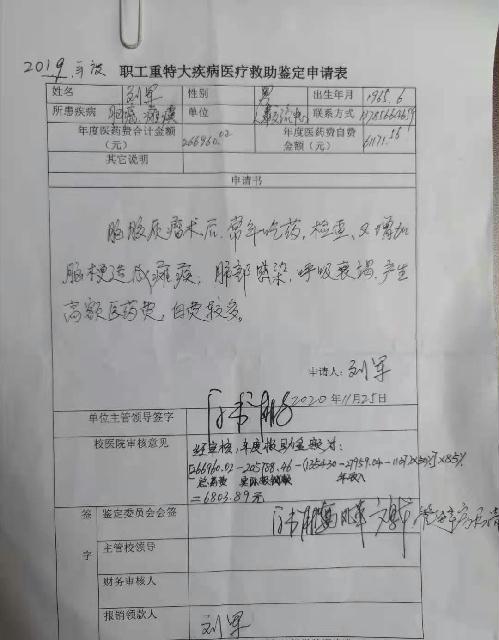 2019年度 职工重特大疾病医疗救助鉴定申请表
姓名 刘军 性别 男 出生年月 1965.6
所患疾病 脑瘤、瘫痪 单位 联系方式
年度医药费合计金额（元） 266960.02 年度医药费自费金额（元） 61171.56
其它说明
申请书
脑胶质瘤术后,常年吃药,检查,又增加
脑梗造成瘫痪,肺部感染,呼吸衰竭,产生
高额医药费,自费较多。
申请人:刘军
2020年11月25日
单位主管领导签字
校医院审核意见 经审核,年度救助金额为:
[266960.02-205788.46-(135630-27959.04-
总药费 实际报销额 年收入
=6803.89元
签字 鉴定委员会会签
主管校领导
财务审核人
报销领款人 刘军